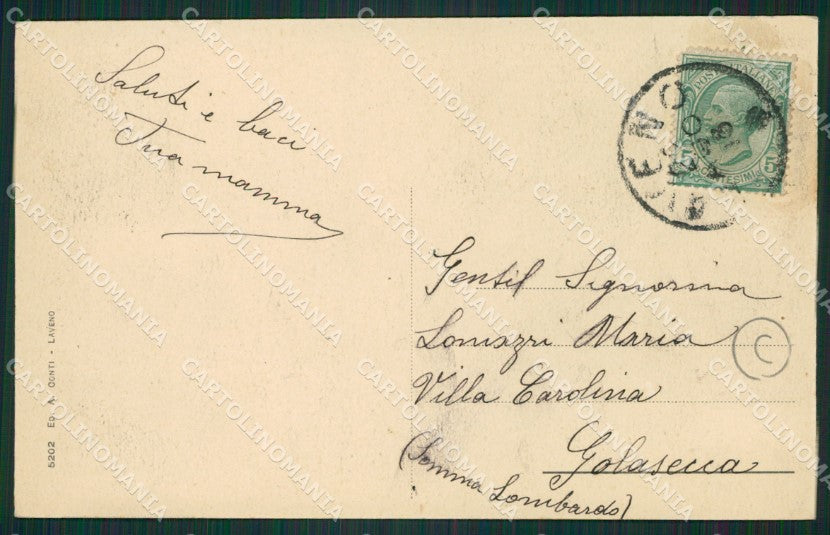 Saluti e baci
Tua mamma
POSTE ITALIANE
5 CENTESIMI 5
Gentil Signorina
Lomazzi Maria
Villa Carolina
Golasecca
(Somma Lombardo)
C
5202 ED. A. CONTI - LAVENO
CARTOLINOMANIA